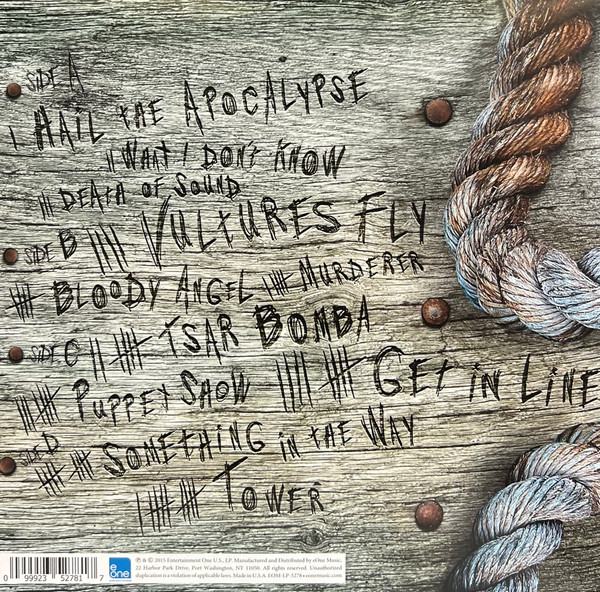 SIDE A
I HAIL the APOCALYPSE
II WHAT I DON'T KNOW
III DEATH OF SOUND
SIDE B IIII VULTURES FLY
BLOODY ANGEL MURDERER
SIDE C TSAR BOMBA
PUPPET SHOW GET IN LINE
SIDE D SOMETHING IN tHE WAY
TOWER
℗ & © 2015 Entertainment One U.S., LP. Manufactured and Distributed by eOne Music.
22 Harbor Park Drive, Port Washington, NY 11050. All rights reserved. Unauthorized
duplication is a violation of applicable laws. Made in U.S.A. EOM-LP-5278 • eonemusic.com
0 99923 52781 7
e one